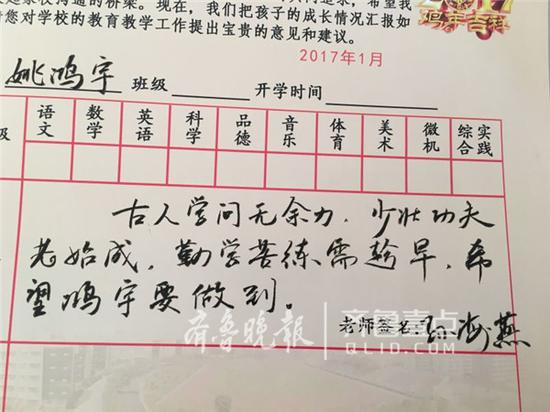 沟通的桥梁。现在，我们把孩子的成长情况汇报如
对学校的教育教学工作提出宝贵的意见和建议。
鸡年吉祥
2017年1月
姚鸿宇 班级 开学时间
级 语文 数学 英语 科学 品德 音乐 体育 美术 微机 综合实践
古人学问无余力，少壮功夫
老始成，勤学苦练需趁早，希
望鸿宇要做到。
老师签名 海燕
齐鲁晚报 齐鲁壹点
QLID.COM